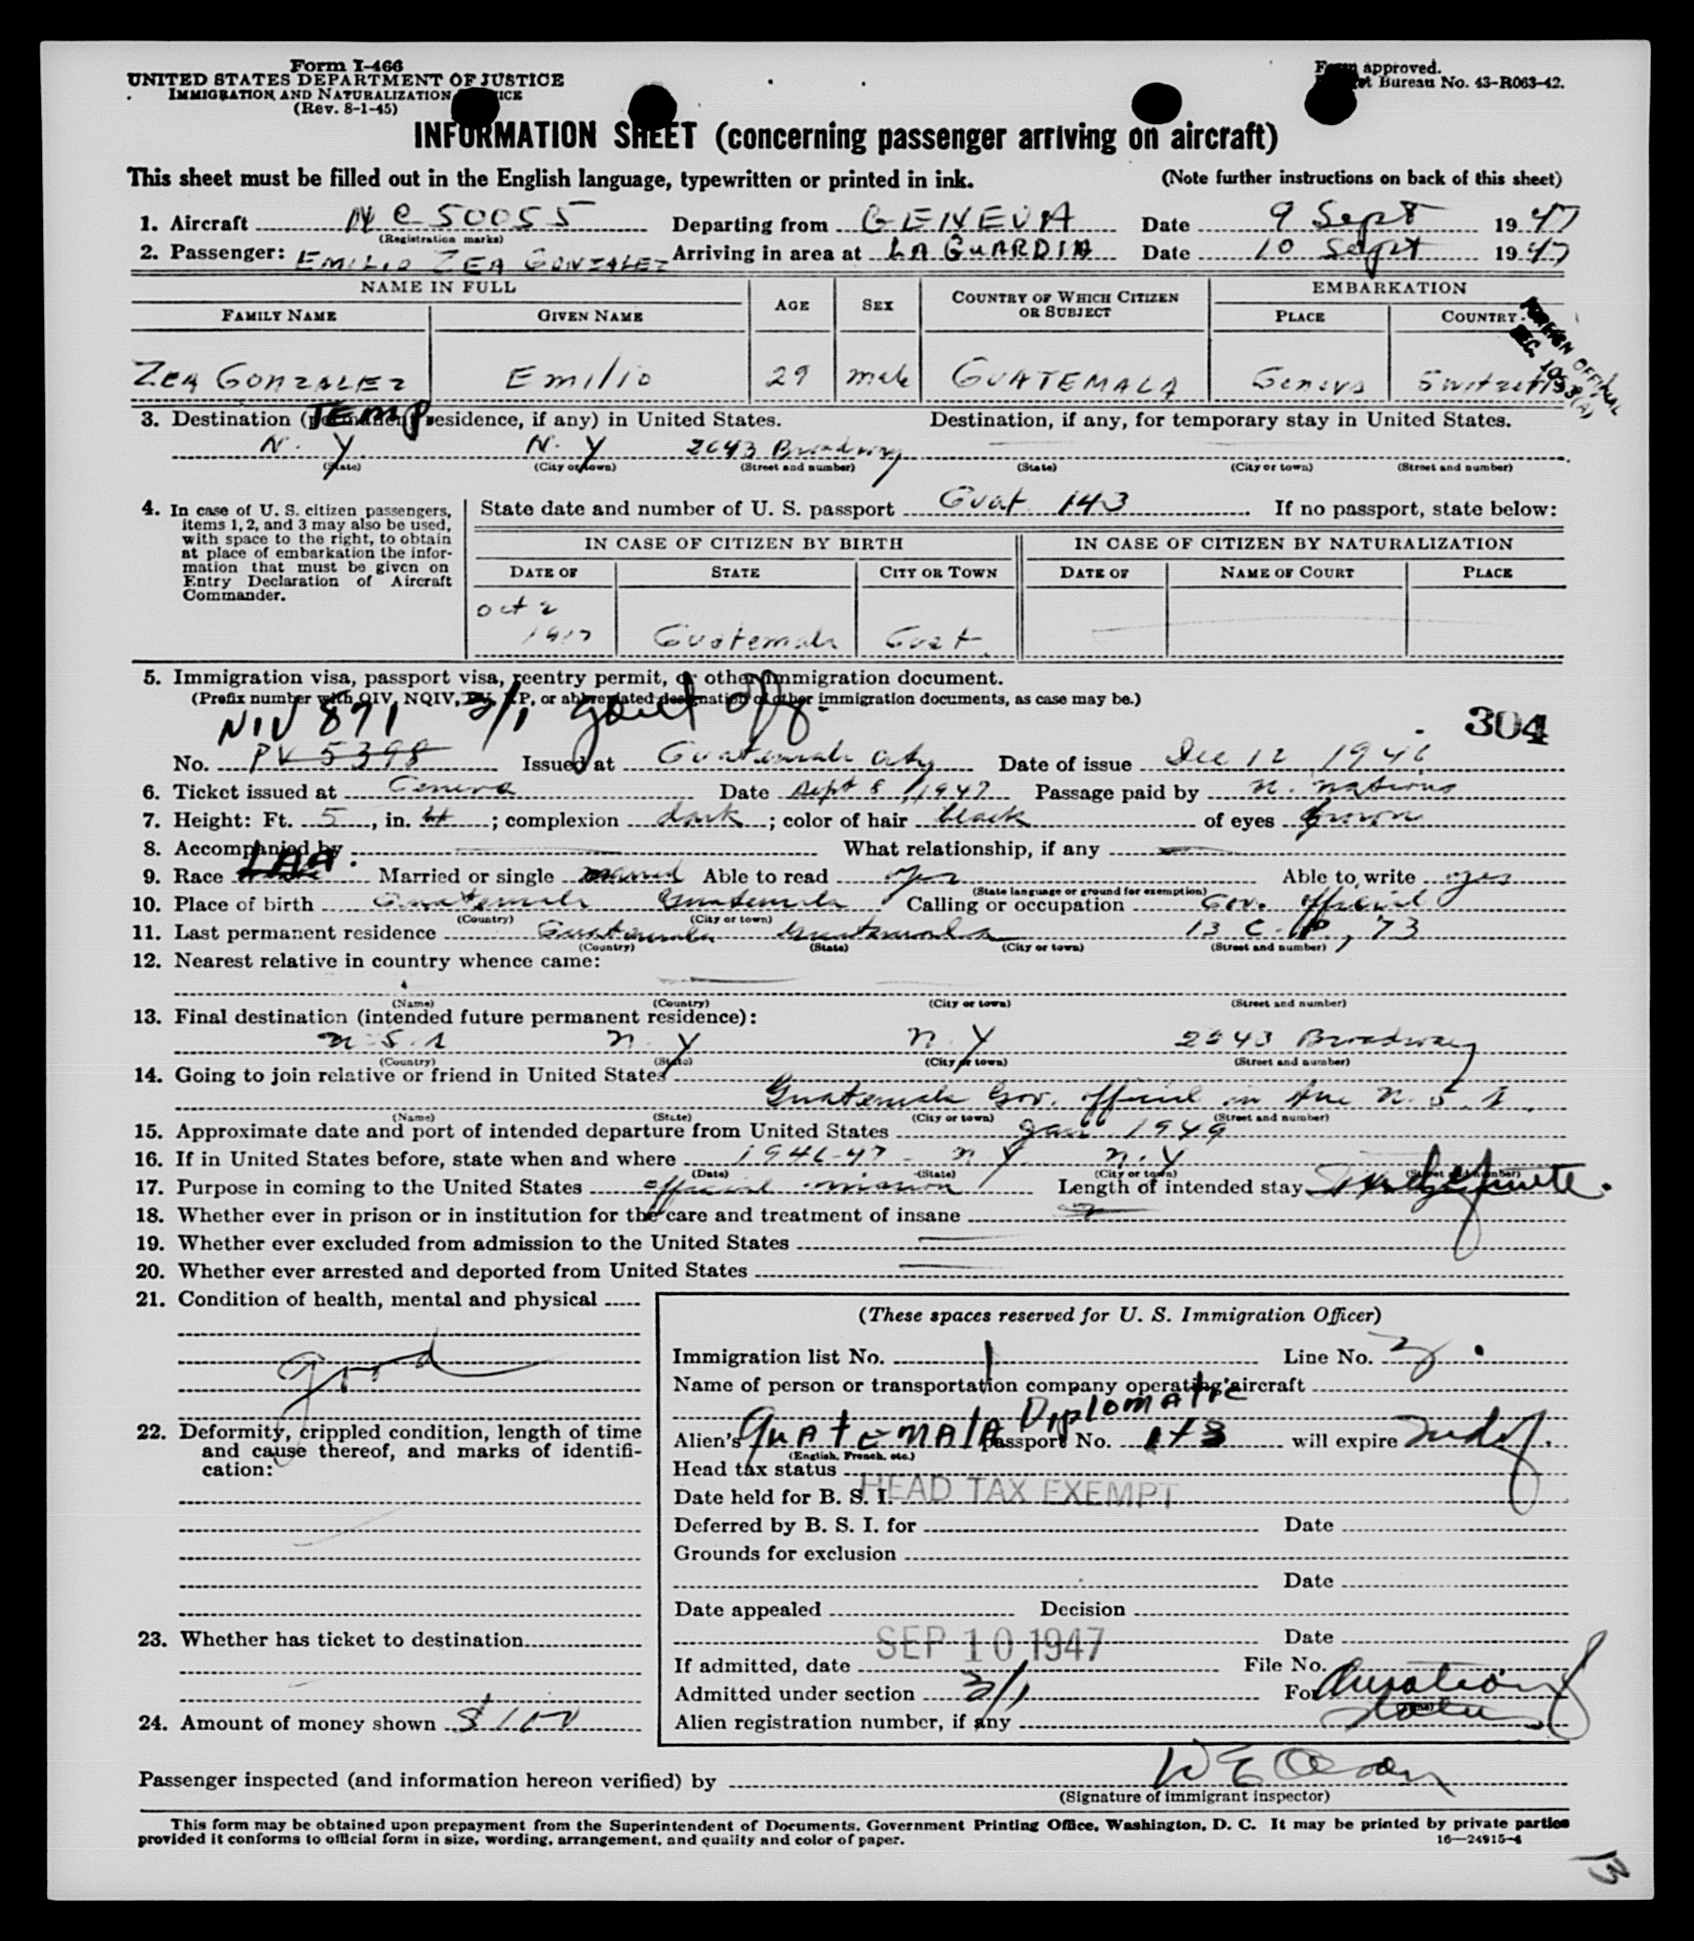 Form I-466
UNITED STATES DEPARTMENT OF JUSTICE
IMMIGRATION AND NATURALIZATION
(Rev. 8-1-45)
approved.
Bureau No. 43-R063-42.
INFORMATION SHEET (concerning passenger arriving on aircraft)
This sheet must be filled out in the English language, typewritten or printed in ink. (Note further instructions on back of this sheet)
1. Aircraft NC 50055 Departing from GENEVA Date 9 Sept 1947
(Registration marks)
2. Passenger: EMILIO ZEA GONZALEZ Arriving in area at LA GUARDIA Date 10 Sept 1947
NAME IN FULL AGE SEX COUNTRY OF WHICH CITIZEN OR SUBJECT EMBARKATION
FAMILY NAME GIVEN NAME PLACE COUNTRY
FOREIGN OFFICIAL
ZEA GONZALEZ Emilio 29 male GUATEMALA Geneva Switzerl
3. Destination (TEMP residence, if any) in United States. Destination, if any, for temporary stay in United States.
N. Y N. Y 2643 Broadway
(State) (City or town) (Street and number) (State) (City or town) (Street and number)
4. In case of U. S. citizen passengers, items 1, 2, and 3 may also be used, with space to the right, to obtain at place of embarkation the information that must be given on Entry Declaration of Aircraft Commander.
State date and number of U. S. passport Guat 143 If no passport, state below:
IN CASE OF CITIZEN BY BIRTH IN CASE OF CITIZEN BY NATURALIZATION
DATE OF STATE CITY OR TOWN DATE OF NAME OF COURT PLACE
Oct 2
1917 Guatemala Guat.
5. Immigration visa, passport visa, reentry permit, or other immigration document.
(Prefix number with QIV, NQIV, PV, RP, or abbreviated designation of other immigration documents, as case may be.)
NIV 871 3/1 govt off. 304
No. PV 5398 Issued at Guatemala City Date of issue Dec 12 1946
6. Ticket issued at Geneva Date Sept 8, 1947 Passage paid by U. Nations
7. Height: Ft. 5, in. ; complexion dark; color of hair black of eyes Brown
8. Accompanied by What relationship, if any
9. Race LAA. Married or single married Able to read yes Able to write yes
(State language or ground for exemption)
10. Place of birth Guatemala Guatemala Calling or occupation Gov. official
(Country) (City or town)
11. Last permanent residence Guatemala Guatemala 13 C. P., 73
(Country) (State) (City or town) (Street and number)
12. Nearest relative in country whence came:
(Name) (Country) (City or town) (Street and number)
13. Final destination (intended future permanent residence):
U.S.A N. Y N. Y 2643 Broadway
(Country) (State) (City or town) (Street and number)
14. Going to join relative or friend in United States
Guatemala Gov. official in the U. S. A.
(Name) (State) (City or town) (Street and number)
15. Approximate date and port of intended departure from United States Jan 1949
16. If in United States before, state when and where 1946-47 - N. Y. N. Y
(Date) (State) (City or town) (Street and number)
17. Purpose in coming to the United States official mission Length of intended stay Indefinite.
18. Whether ever in prison or in institution for the care and treatment of insane
19. Whether ever excluded from admission to the United States
20. Whether ever arrested and deported from United States
21. Condition of health, mental and physical
good
22. Deformity, crippled condition, length of time and cause thereof, and marks of identification:
23. Whether has ticket to destination
24. Amount of money shown $100
(These spaces reserved for U. S. Immigration Officer)
Immigration list No. 1 Line No. 3
Name of person or transportation company operating aircraft
Diplomatic
Alien's Guatemala passport No. 143 will expire Indef.
(English, French, etc.)
Head tax status
HEAD TAX EXEMPT
Date held for B. S. I.
Deferred by B. S. I. for Date
Grounds for exclusion
Date
Date appealed Decision
SEP 10 1947 Date
If admitted, date File No.
Admitted under section 3/1 For Duration of Status
Alien registration number, if any
Passenger inspected (and information hereon verified) by
(Signature of immigrant inspector)
This form may be obtained upon prepayment from the Superintendent of Documents, Government Printing Office, Washington, D. C. It may be printed by private parties
provided it conforms to official form in size, wording, arrangement, and quality and color of paper. 16—24915-4
13